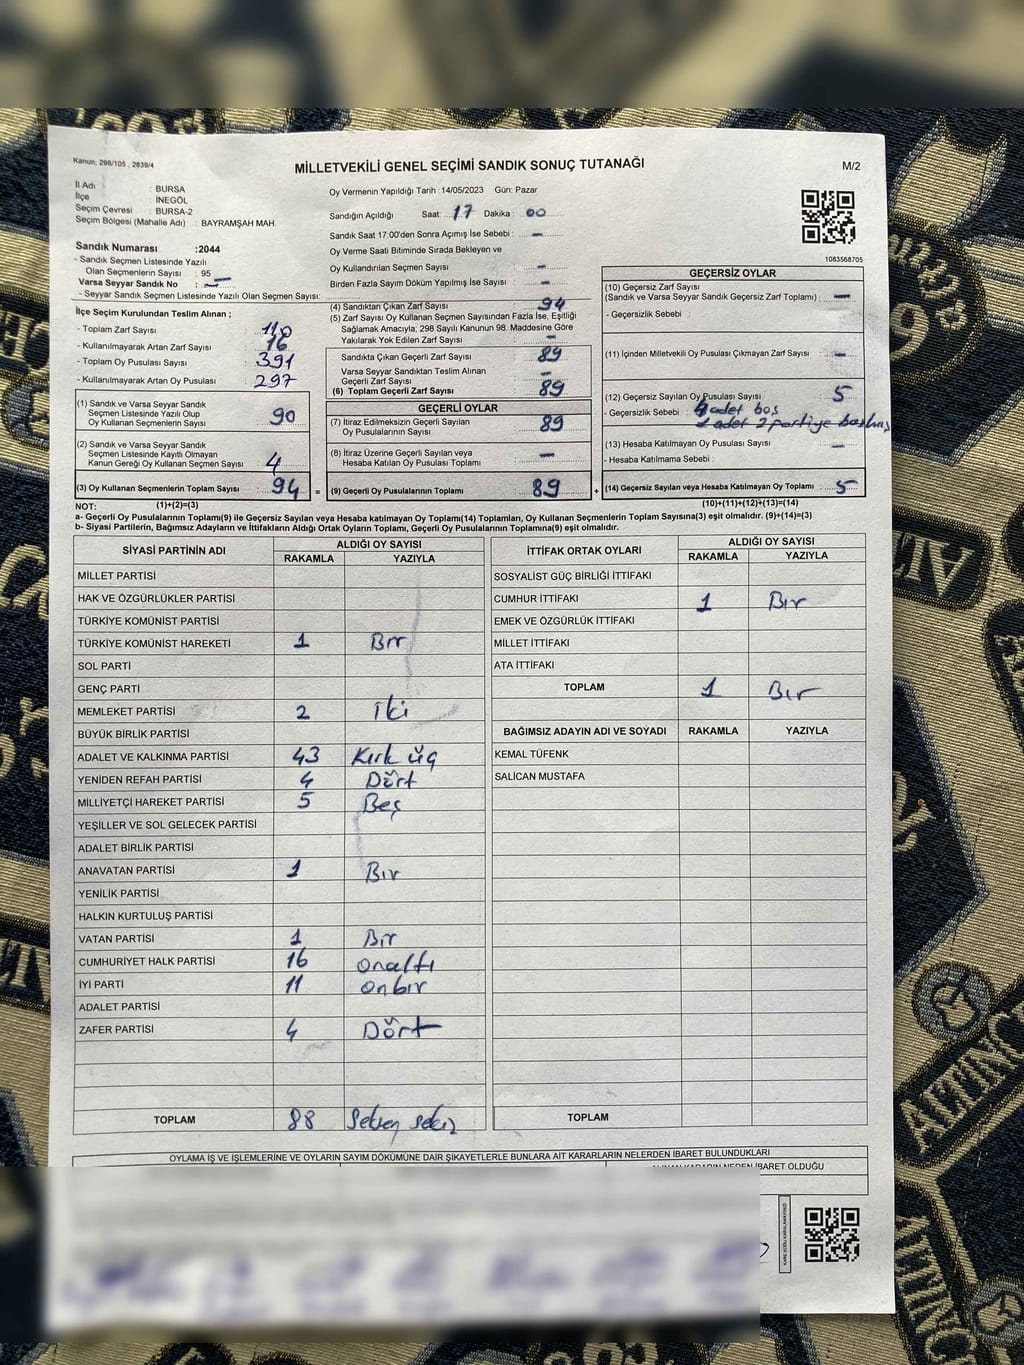 Kanun; 298/105 , 2839/4
MİLLETVEKİLİ GENEL SEÇİMİ SANDIK SONUÇ TUTANAĞI
M/2
İl Adı : BURSA
İlçe : İNEGÖL
Seçim Çevresi : BURSA-2
Seçim Bölgesi (Mahalle Adı) : BAYRAMŞAH MAH.
Sandık Numarası :2044
- Sandık Seçmen Listesinde Yazılı
Olan Seçmenlerin Sayısı : 95
Varsa Seyyar Sandık No : –
- Seyyar Sandık Seçmen Listesinde Yazılı Olan Seçmen Sayısı:
İlçe Seçim Kurulundan Teslim Alınan ;
- Toplam Zarf Sayısı : 110
- Kullanılmayarak Artan Zarf Sayısı : 16
- Toplam Oy Pusulası Sayısı : 391
- Kullanılmayarak Artan Oy Pusulası : 297
(1) Sandık ve Varsa Seyyar Sandık
Seçmen Listesinde Yazılı Olup
Oy Kullanan Seçmenlerin Sayısı : 90
(2) Sandık ve Varsa Seyyar Sandık
Seçmen Listesinde Kayıtlı Olmayan
Kanun Gereği Oy Kullanan Seçmen Sayısı : 4
(3) Oy Kullanan Seçmenlerin Toplam Sayısı : 94 =
(1)+(2)=(3)
Oy Vermenin Yapıldığı Tarih :14/05/2023 Gün: Pazar
Sandığın Açıldığı Saat : 17 Dakika : 00
Sandık Saat 17:00'den Sonra Açımış İse Sebebi : –
Oy Verme Saati Bitiminde Sırada Bekleyen ve
Oy Kullandırılan Seçmen Sayısı : –
Birden Fazla Sayım Döküm Yapılmış İse Sayısı : –
(4) Sandıktan Çıkan Zarf Sayısı : 94
(5) Zarf Sayısı Oy Kullanan Seçmen Sayısından Fazla İse, Eşitliği
Sağlamak Amacıyla; 298 Sayılı Kanunun 98. Maddesine Göre
Yakılarak Yok Edilen Zarf Sayısı : –
Sandıkta Çıkan Geçerli Zarf Sayısı : 89
Varsa Seyyar Sandıktan Teslim Alınan
Geçerli Zarf Sayısı : –
(6) Toplam Geçerli Zarf Sayısı : 89
GEÇERLİ OYLAR
(7) İtiraz Edilmeksizin Geçerli Sayılan
Oy Pusulalarının Sayısı : 89
(8) İtiraz Üzerine Geçerli Sayılan veya
Hesaba Katılan Oy Pusulası Toplamı : –
(9) Geçerli Oy Pusulalarının Toplamı : 89 +
1083568705
GEÇERSİZ OYLAR
(10) Geçersiz Zarf Sayısı
(Sandık ve Varsa Seyyar Sandık Geçersiz Zarf Toplamı) : –
- Geçersizlik Sebebi :
(11) İçinden Milletvekili Oy Pusulası Çıkmayan Zarf Sayısı : –
(12) Geçersiz Sayılan Oy Pusulası Sayısı : 5
- Geçersizlik Sebebi : 4 adet boş
1 adet 2 partiye basılmış
(13) Hesaba Katılmayan Oy Pusulası Sayısı : –
- Hesaba Katılmama Sebebi :
(14) Geçersiz Sayılan veya Hesaba Katılmayan Oy Toplamı : 5
(10)+(11)+(12)+(13)=(14)
NOT:
a- Geçerli Oy Pusulalarının Toplamı(9) ile Geçersiz Sayılan veya Hesaba katılmayan Oy Toplamı(14) Toplamları, Oy Kullanan Seçmenlerin Toplam Sayısına(3) eşit olmalıdır. (9)+(14)=(3)
b- Siyasi Partilerin, Bağımsız Adayların ve İttifakların Aldığı Ortak Oyların Toplamı, Geçerli Oy Pusulalarının Toplamına(9) eşit olmalıdır.
SİYASİ PARTİNİN ADI ALDIĞI OY SAYISI
RAKAMLA YAZIYLA
MİLLET PARTİSİ
HAK VE ÖZGÜRLÜKLER PARTİSİ
TÜRKİYE KOMÜNİST PARTİSİ
TÜRKİYE KOMÜNİST HAREKETİ 1 Bir
SOL PARTİ
GENÇ PARTİ
MEMLEKET PARTİSİ 2 iki
BÜYÜK BİRLİK PARTİSİ
ADALET VE KALKINMA PARTİSİ 43 Kırk üç
YENİDEN REFAH PARTİSİ 4 Dört
MİLLİYETÇİ HAREKET PARTİSİ 5 Beş
YEŞİLLER VE SOL GELECEK PARTİSİ
ADALET BİRLİK PARTİSİ
ANAVATAN PARTİSİ 1 Bir
YENİLİK PARTİSİ
HALKIN KURTULUŞ PARTİSİ
VATAN PARTİSİ 1 Bir
CUMHURİYET HALK PARTİSİ 16 onaltı
İYİ PARTİ 11 onbir
ADALET PARTİSİ
ZAFER PARTİSİ 4 Dört
TOPLAM 88 Seksen sekiz
İTTİFAK ORTAK OYLARI ALDIĞI OY SAYISI
RAKAMLA YAZIYLA
SOSYALİST GÜÇ BİRLİĞİ İTTİFAKI
CUMHUR İTTİFAKI 1 Bir
EMEK VE ÖZGÜRLÜK İTTİFAKI
MİLLET İTTİFAKI
ATA İTTİFAKI
TOPLAM 1 Bir
BAĞIMSIZ ADAYIN ADI VE SOYADI RAKAMLA YAZIYLA
KEMAL TÜFENK
SALİCAN MUSTAFA
TOPLAM
OYLAMA İŞ VE İŞLEMLERİNE VE OYLARIN SAYIM DÖKÜMÜNE DAİR ŞİKAYETLERLE BUNLARA AİT KARARLARIN NELERDEN İBARET BULUNDUKLARI
ALINAN KARARIN NEDEN İBARET OLDUĞU